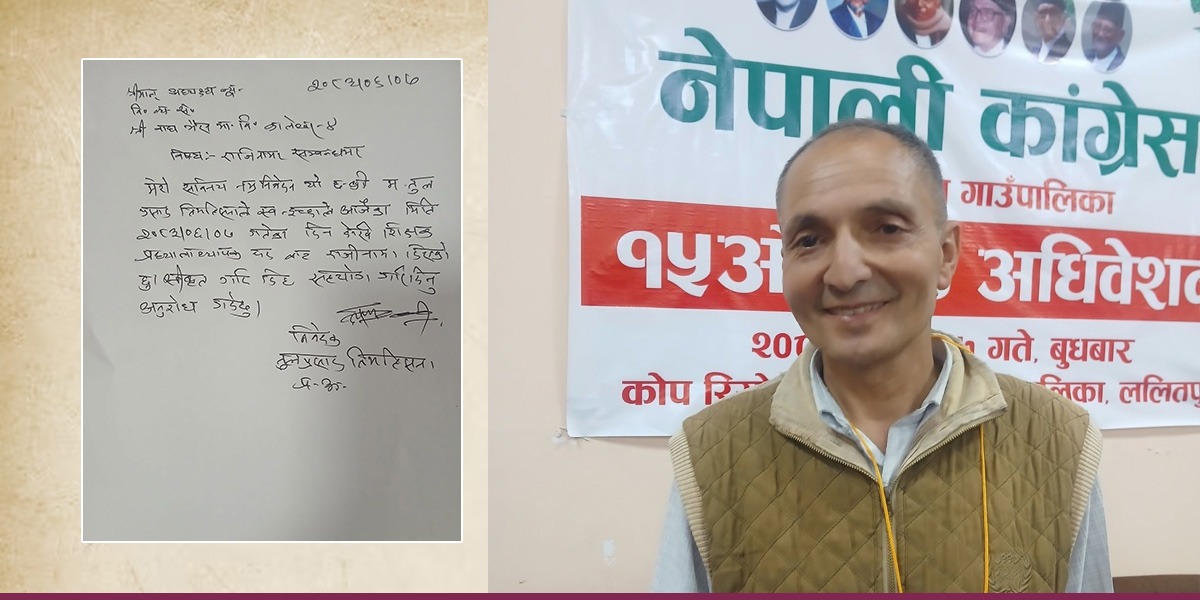 २०८२/०६/०७
श्रीमान् अध्यक्ष ज्यू
वि. व्य. स.
श्री बाघ भैरव आ. वि. कालेश्वर-४
विषय :- राजिनामा सम्बन्धमा
मेरो सविनय नम्र निवेदन यो छ की म तुल
प्रसाद तिमल्सिनाले स्व-इच्छाले आजैका मिति
२०८२/०६/०७ गतेका दिन देखि शिक्षक
प्रधानाध्यापक पद बाट राजीनामा दिएको
छु। स्वीकृत गरि दिई सहयोग गरिदिनु
अनुरोध गर्दछु।
निवेदक
तुलप्रसाद तिमल्सिना
प्र. अ.
नेपाली कांग्रेस
गाउँपालिका
१५औं अधिवेशन
गते, बुधबार
कोप ललितपु